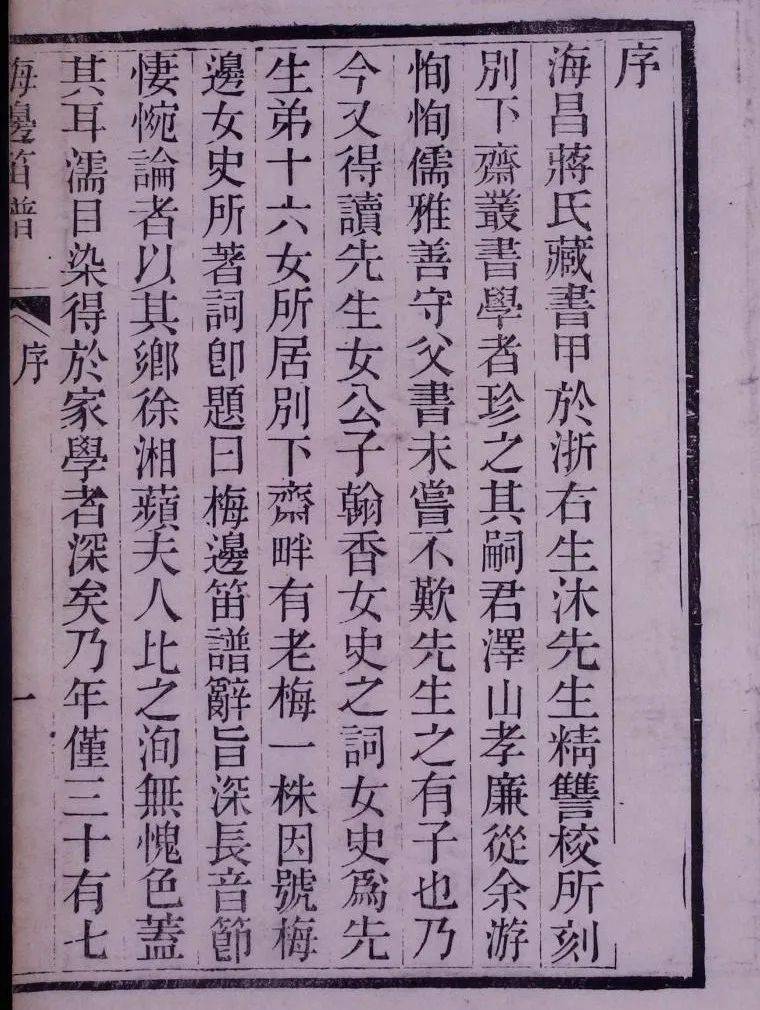 序
海昌蔣氏藏書甲於浙右生沐先生精讐校所刻
別下齋叢書學者珍之其嗣君澤山孝廉從余游
恂恂儒雅善守父書未嘗不歎先生之有子也乃
今又得讀先生女公子翰香女史之詞女史爲先
生弟十六女所居別下齋畔有老梅一株因號梅
邊女史所著詞卽題曰梅邊笛譜辭旨深長音節
悽惋論者以其鄉徐湘蘋夫人比之洵無愧色蓋
其耳濡目染得於家學者深矣乃年僅三十有七
梅邊笛譜
序
一